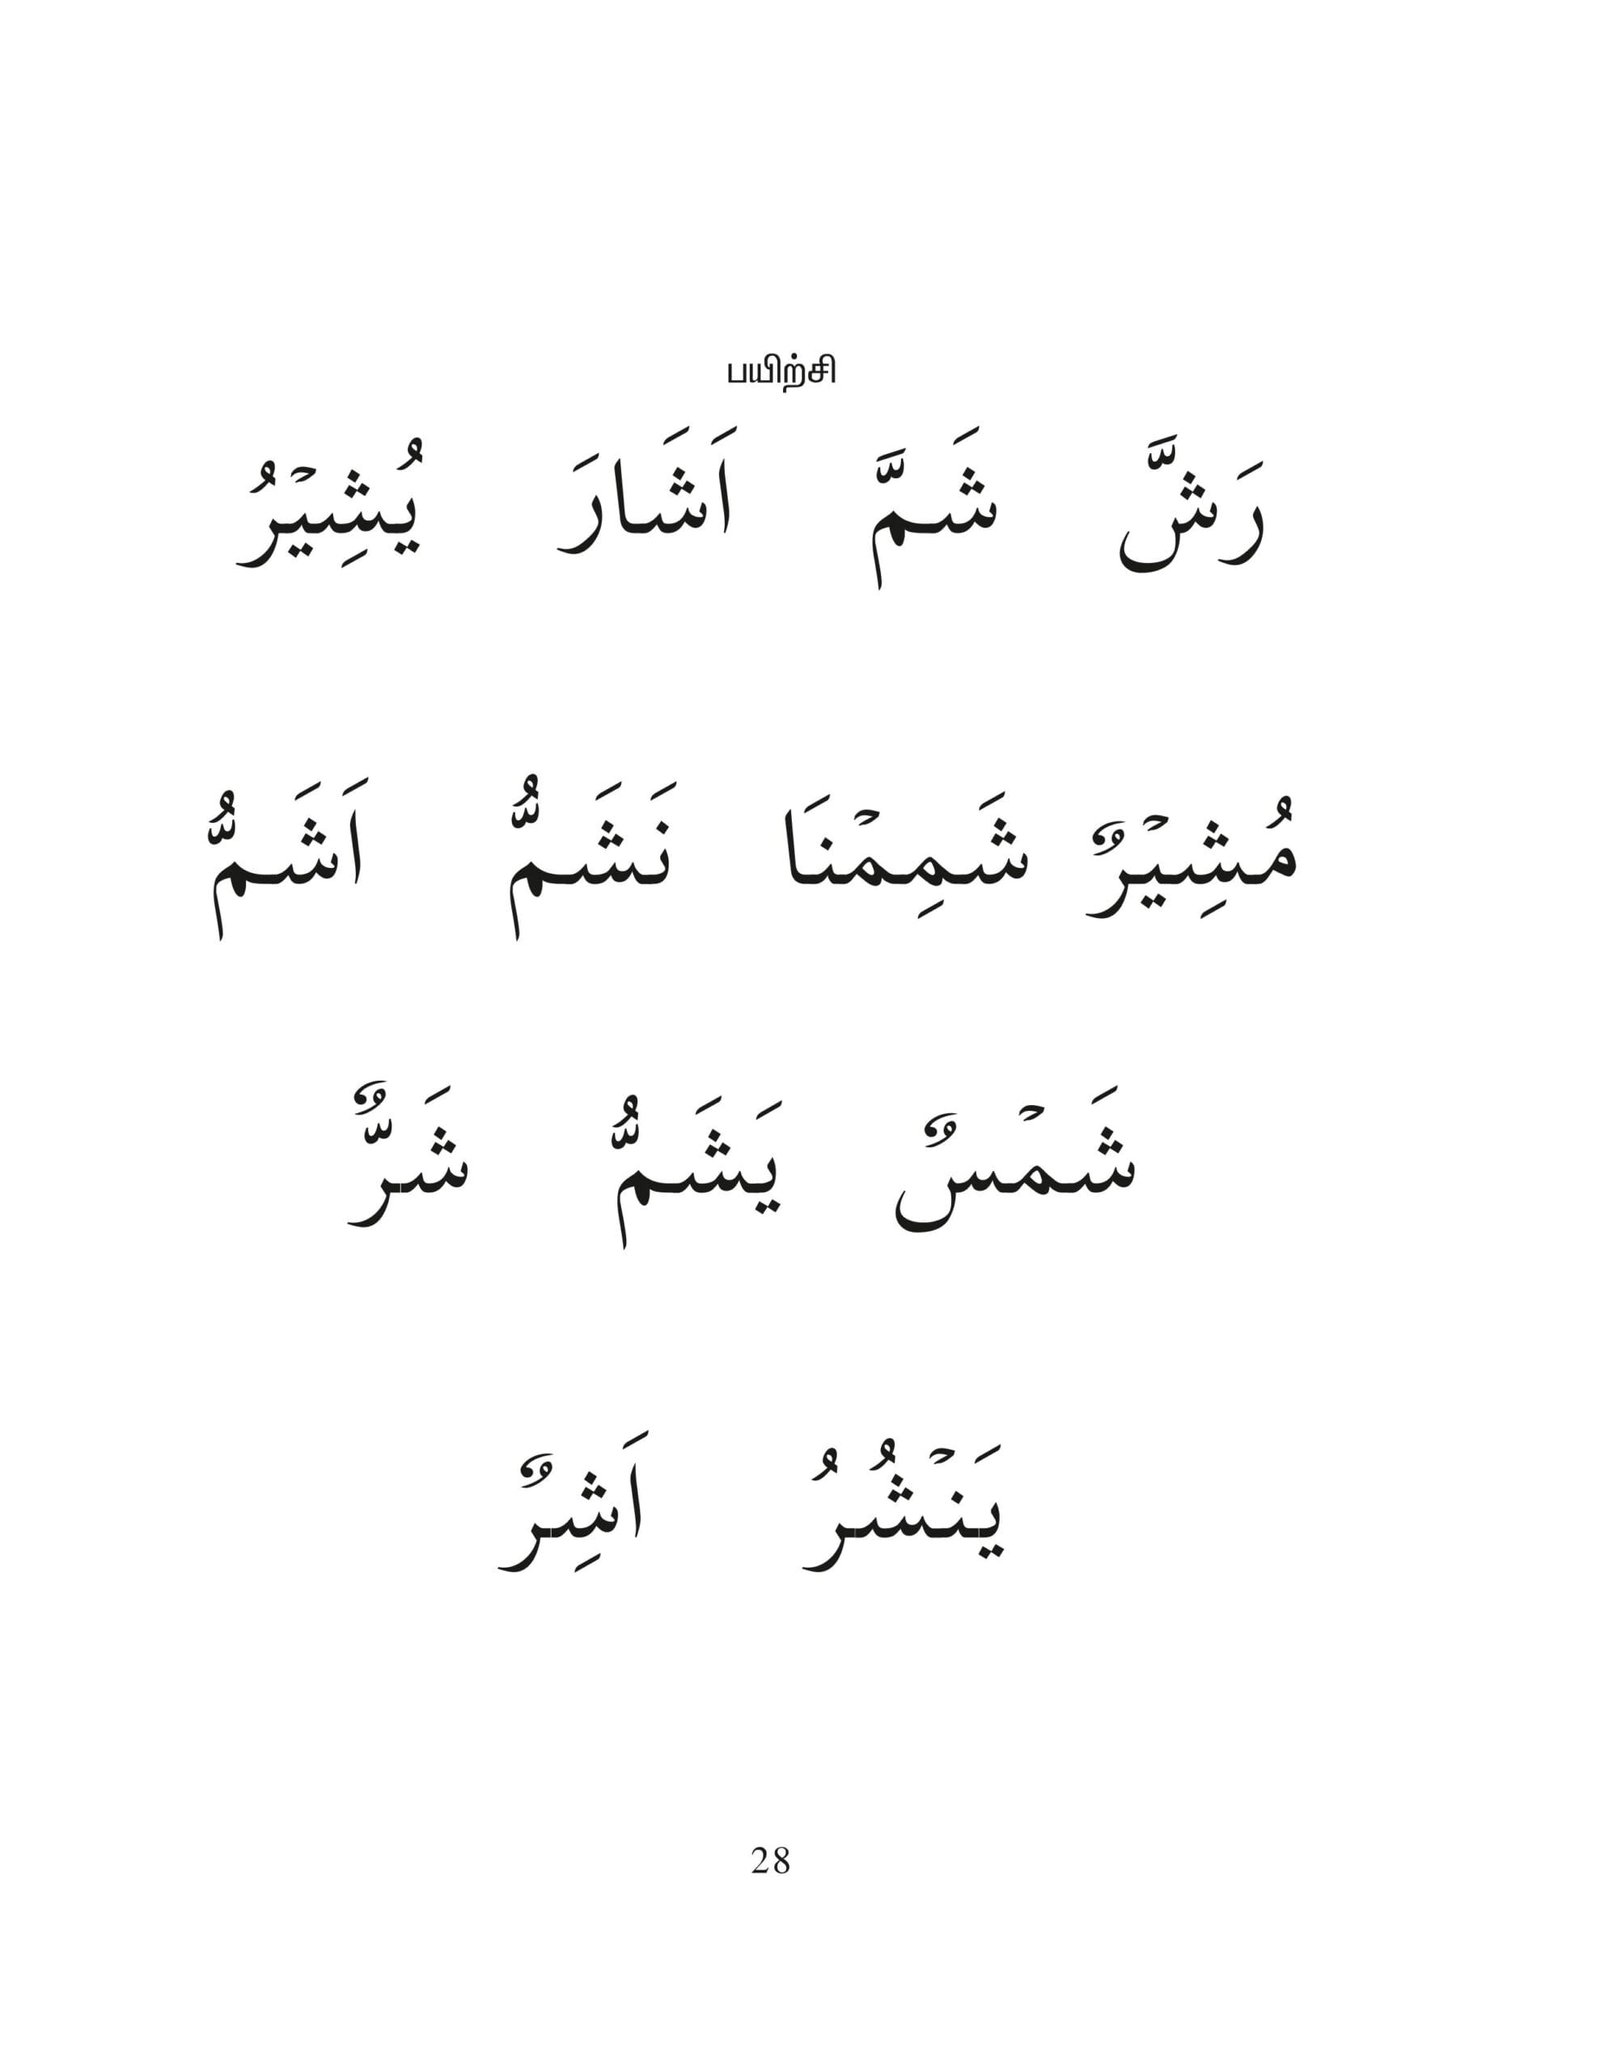 பயிற்சி
رَشَّ شَمَّ اَشَارَ يُشِيْرُ
مُشِيْرٌ شَمِمْنَا نَشَمُّ اَشَمُّ
شَمْسٌ يَشَمُّ شَرٌّ
يَنْشُرُ اَشِرٌ
28